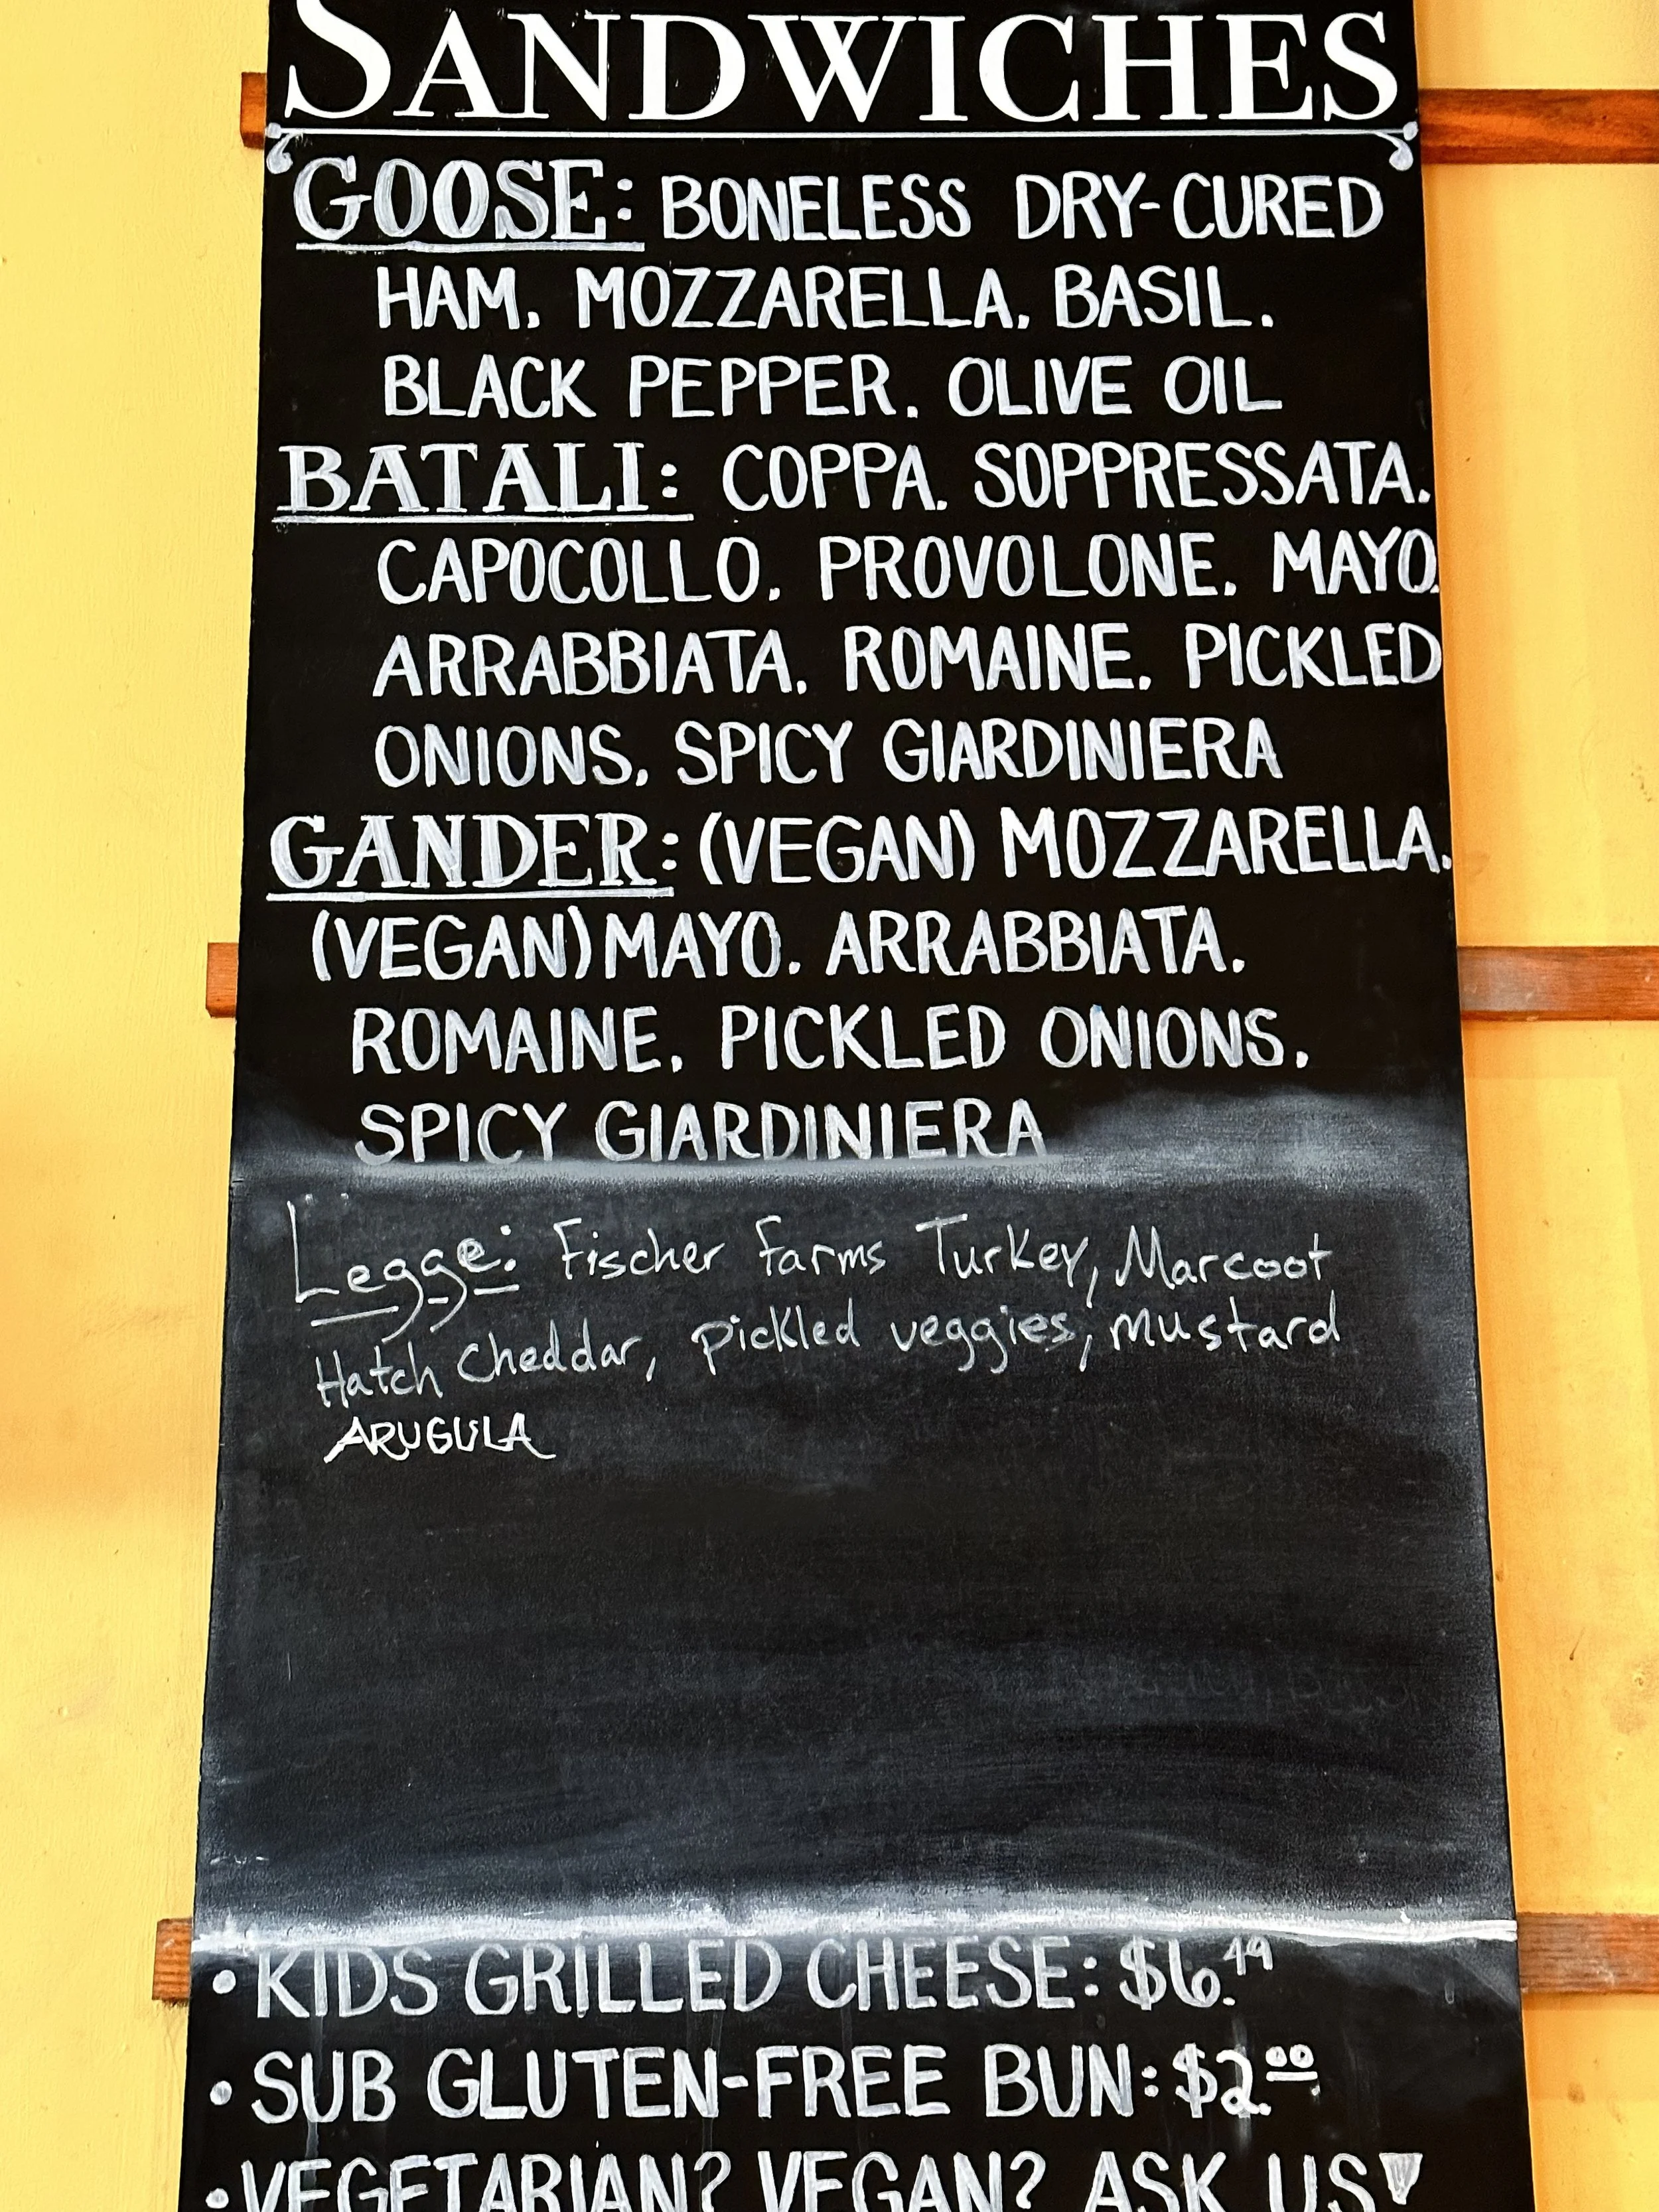 SANDWICHES
GOOSE: BONELESS DRY-CURED
HAM. MOZZARELLA. BASIL.
BLACK PEPPER. OLIVE OIL
BATALI: COPPA. SOPPRESSATA.
CAPOCOLLO. PROVOLONE. MAYO.
ARRABBIATA. ROMAINE. PICKLED
ONIONS. SPICY GIARDINIERA
GANDER: (VEGAN) MOZZARELLA.
(VEGAN) MAYO. ARRABBIATA.
ROMAINE. PICKLED ONIONS.
SPICY GIARDINIERA
Legge: Fischer Farms Turkey, Marcoot
Hatch Cheddar, pickled veggies, mustard
ARUGULA
• KIDS GRILLED CHEESE: $6.49
• SUB GLUTEN-FREE BUN: $2.00
• VEGETARIAN? VEGAN? ASK US!